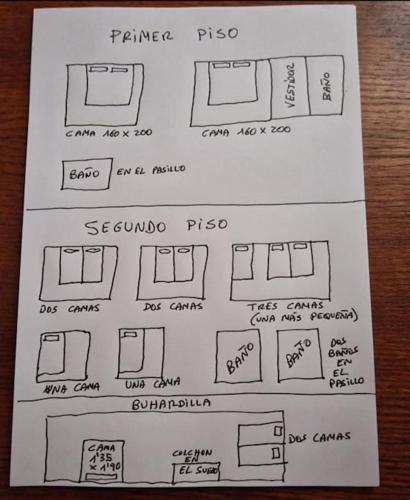 PRIMER PISO
VESTIDOR
BAÑO
CAMA 160 x 200
CAMA 160 x 200
BAÑO
EN EL PASILLO
SEGUNDO PISO
DOS CAMAS
DOS CAMAS
TRES CAMAS
(UNA MÁS PEQUEÑA)
UNA CAMA
UNA CAMA
BAÑO
BAÑO
DOS
BAÑOS
EN EL
PASILLO
BUHARDILLA
CAMA
1'35
x 1'90
COLCHON
EN
EL SUELO
DOS CAMAS